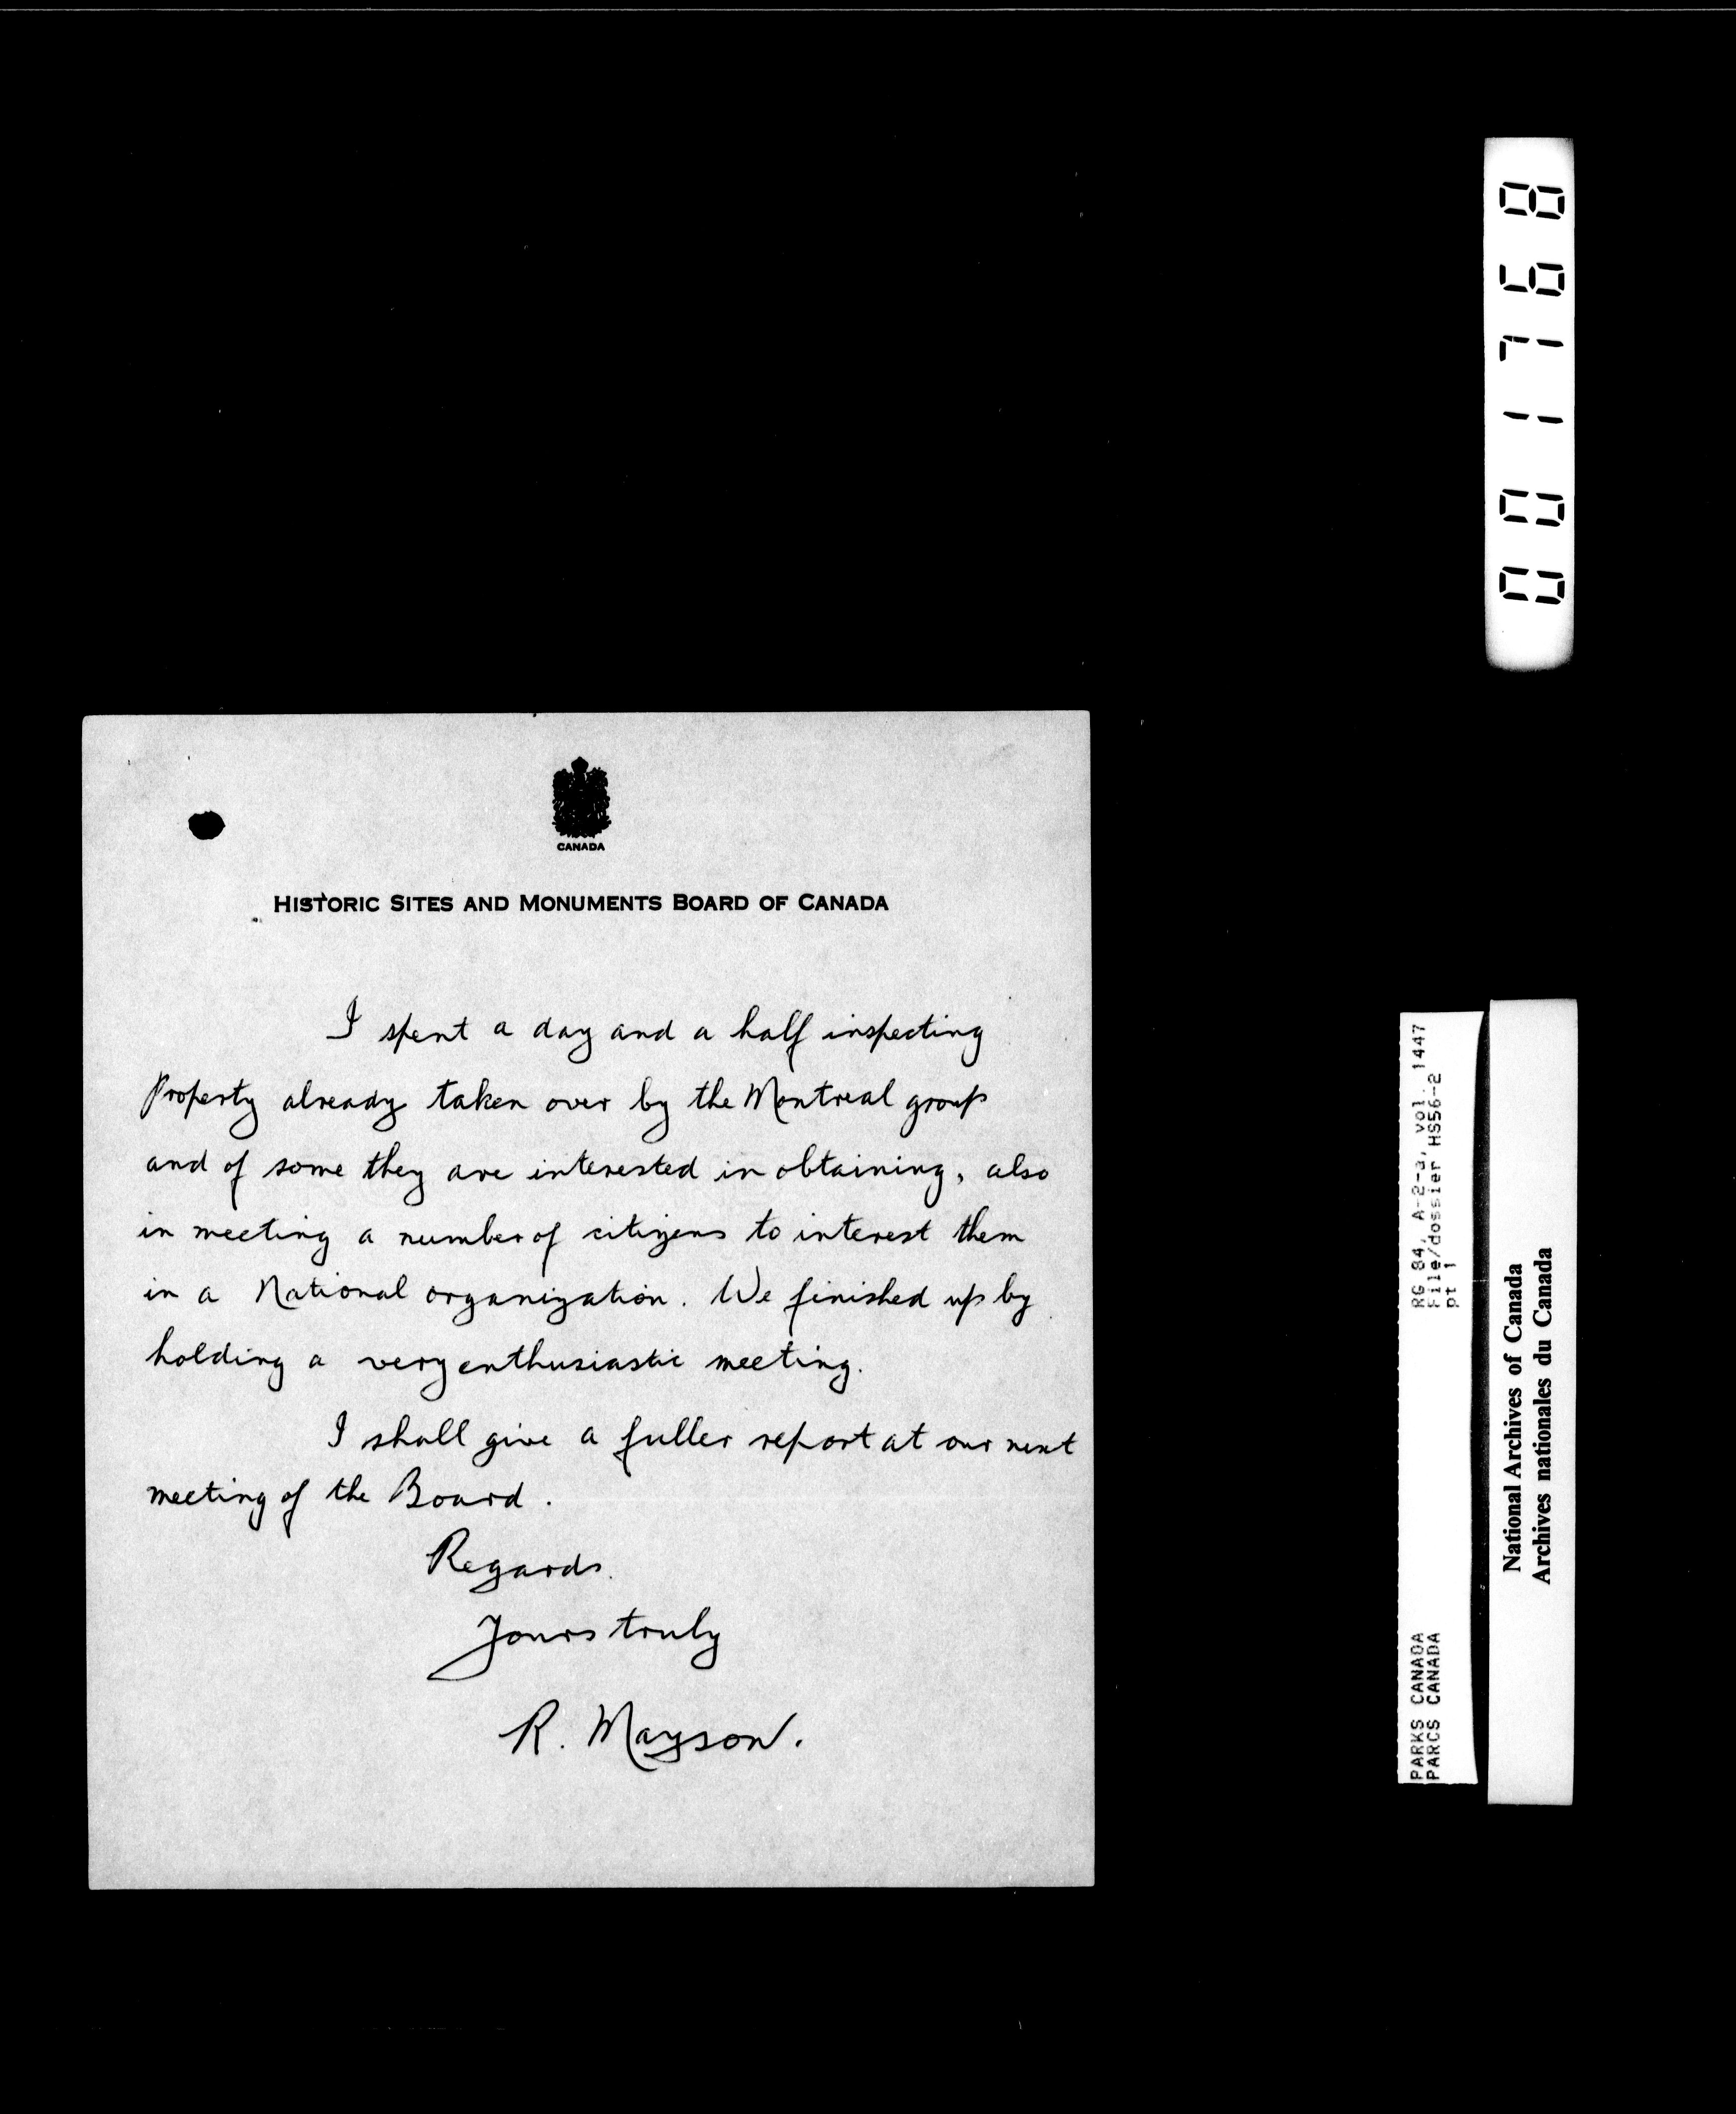 CANADA
HISTORIC SITES AND MONUMENTS BOARD OF CANADA
I spent a day and a half inspecting
Property already taken over by the Montreal group
and of some they are interested in obtaining, also
in meeting a number of citizens to interest them
in a National organization. We finished up by
holding a very enthusiastic meeting.
I shall give a fuller report at our next
meeting of the Board.
Regards.
Yours truly
R. Mayson.
001768
PARKS CANADA
PARCS CANADA
RG 84, A-2-a, vol. 1447
File/dossier HS56-2
pt 1
National Archives of Canada
Archives nationales du Canada